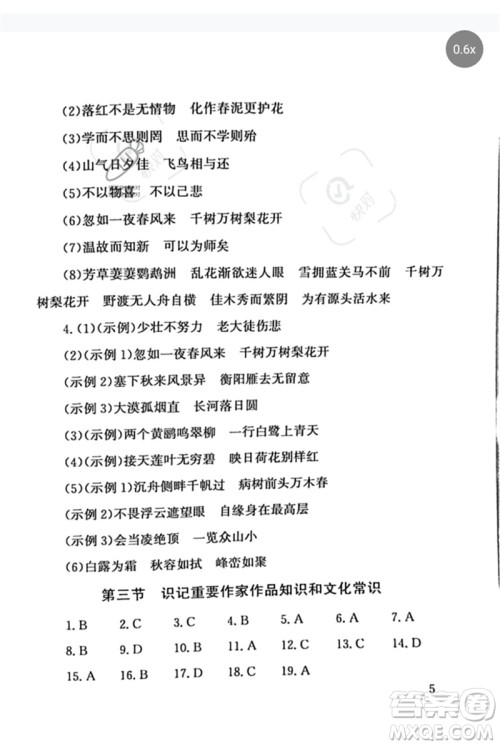 0.6x
(2)落红不是无情物　化作春泥更护花
(3)学而不思则罔　思而不学则殆
(4)山气日夕佳　飞鸟相与还
(5)不以物喜　不以己悲
(6)忽如一夜春风来　千树万树梨花开
(7)温故而知新　可以为师矣
(8)芳草萋萋鹦鹉洲　乱花渐欲迷人眼　雪拥蓝关马不前　千树万
树梨花开　野渡无人舟自横　佳木秀而繁阴　为有源头活水来
4.(1)(示例)少壮不努力　老大徒伤悲
(2)(示例1)忽如一夜春风来　千树万树梨花开
(示例2)塞下秋来风景异　衡阳雁去无留意
(示例3)大漠孤烟直　长河落日圆
(3)(示例)两个黄鹂鸣翠柳　一行白鹭上青天
(4)(示例)接天莲叶无穷碧　映日荷花别样红
(5)(示例1)沉舟侧畔千帆过　病树前头万木春
(示例2)不畏浮云遮望眼　自缘身在最高层
(示例3)会当凌绝顶　一览众山小
(6)白露为霜　秋容如拭　峰峦如聚
第三节　识记重要作家作品知识和文化常识
1.B　2.C　3.D　4.B　5.C　6.A　7.A
8.B　9.D　10.D　11.A　12.B　13.A　14.D
15.A　16.A　17.D　18.C　19.A
5
快对
答案圈
MXQE.COM